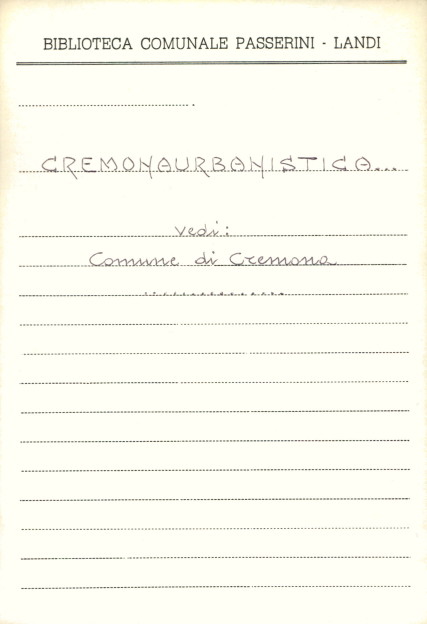 BIBLIOTECA COMUNALE PASSERINI - LANDI
CREMONAURBANISTICA...
vedi:
Comune di Cremona
................